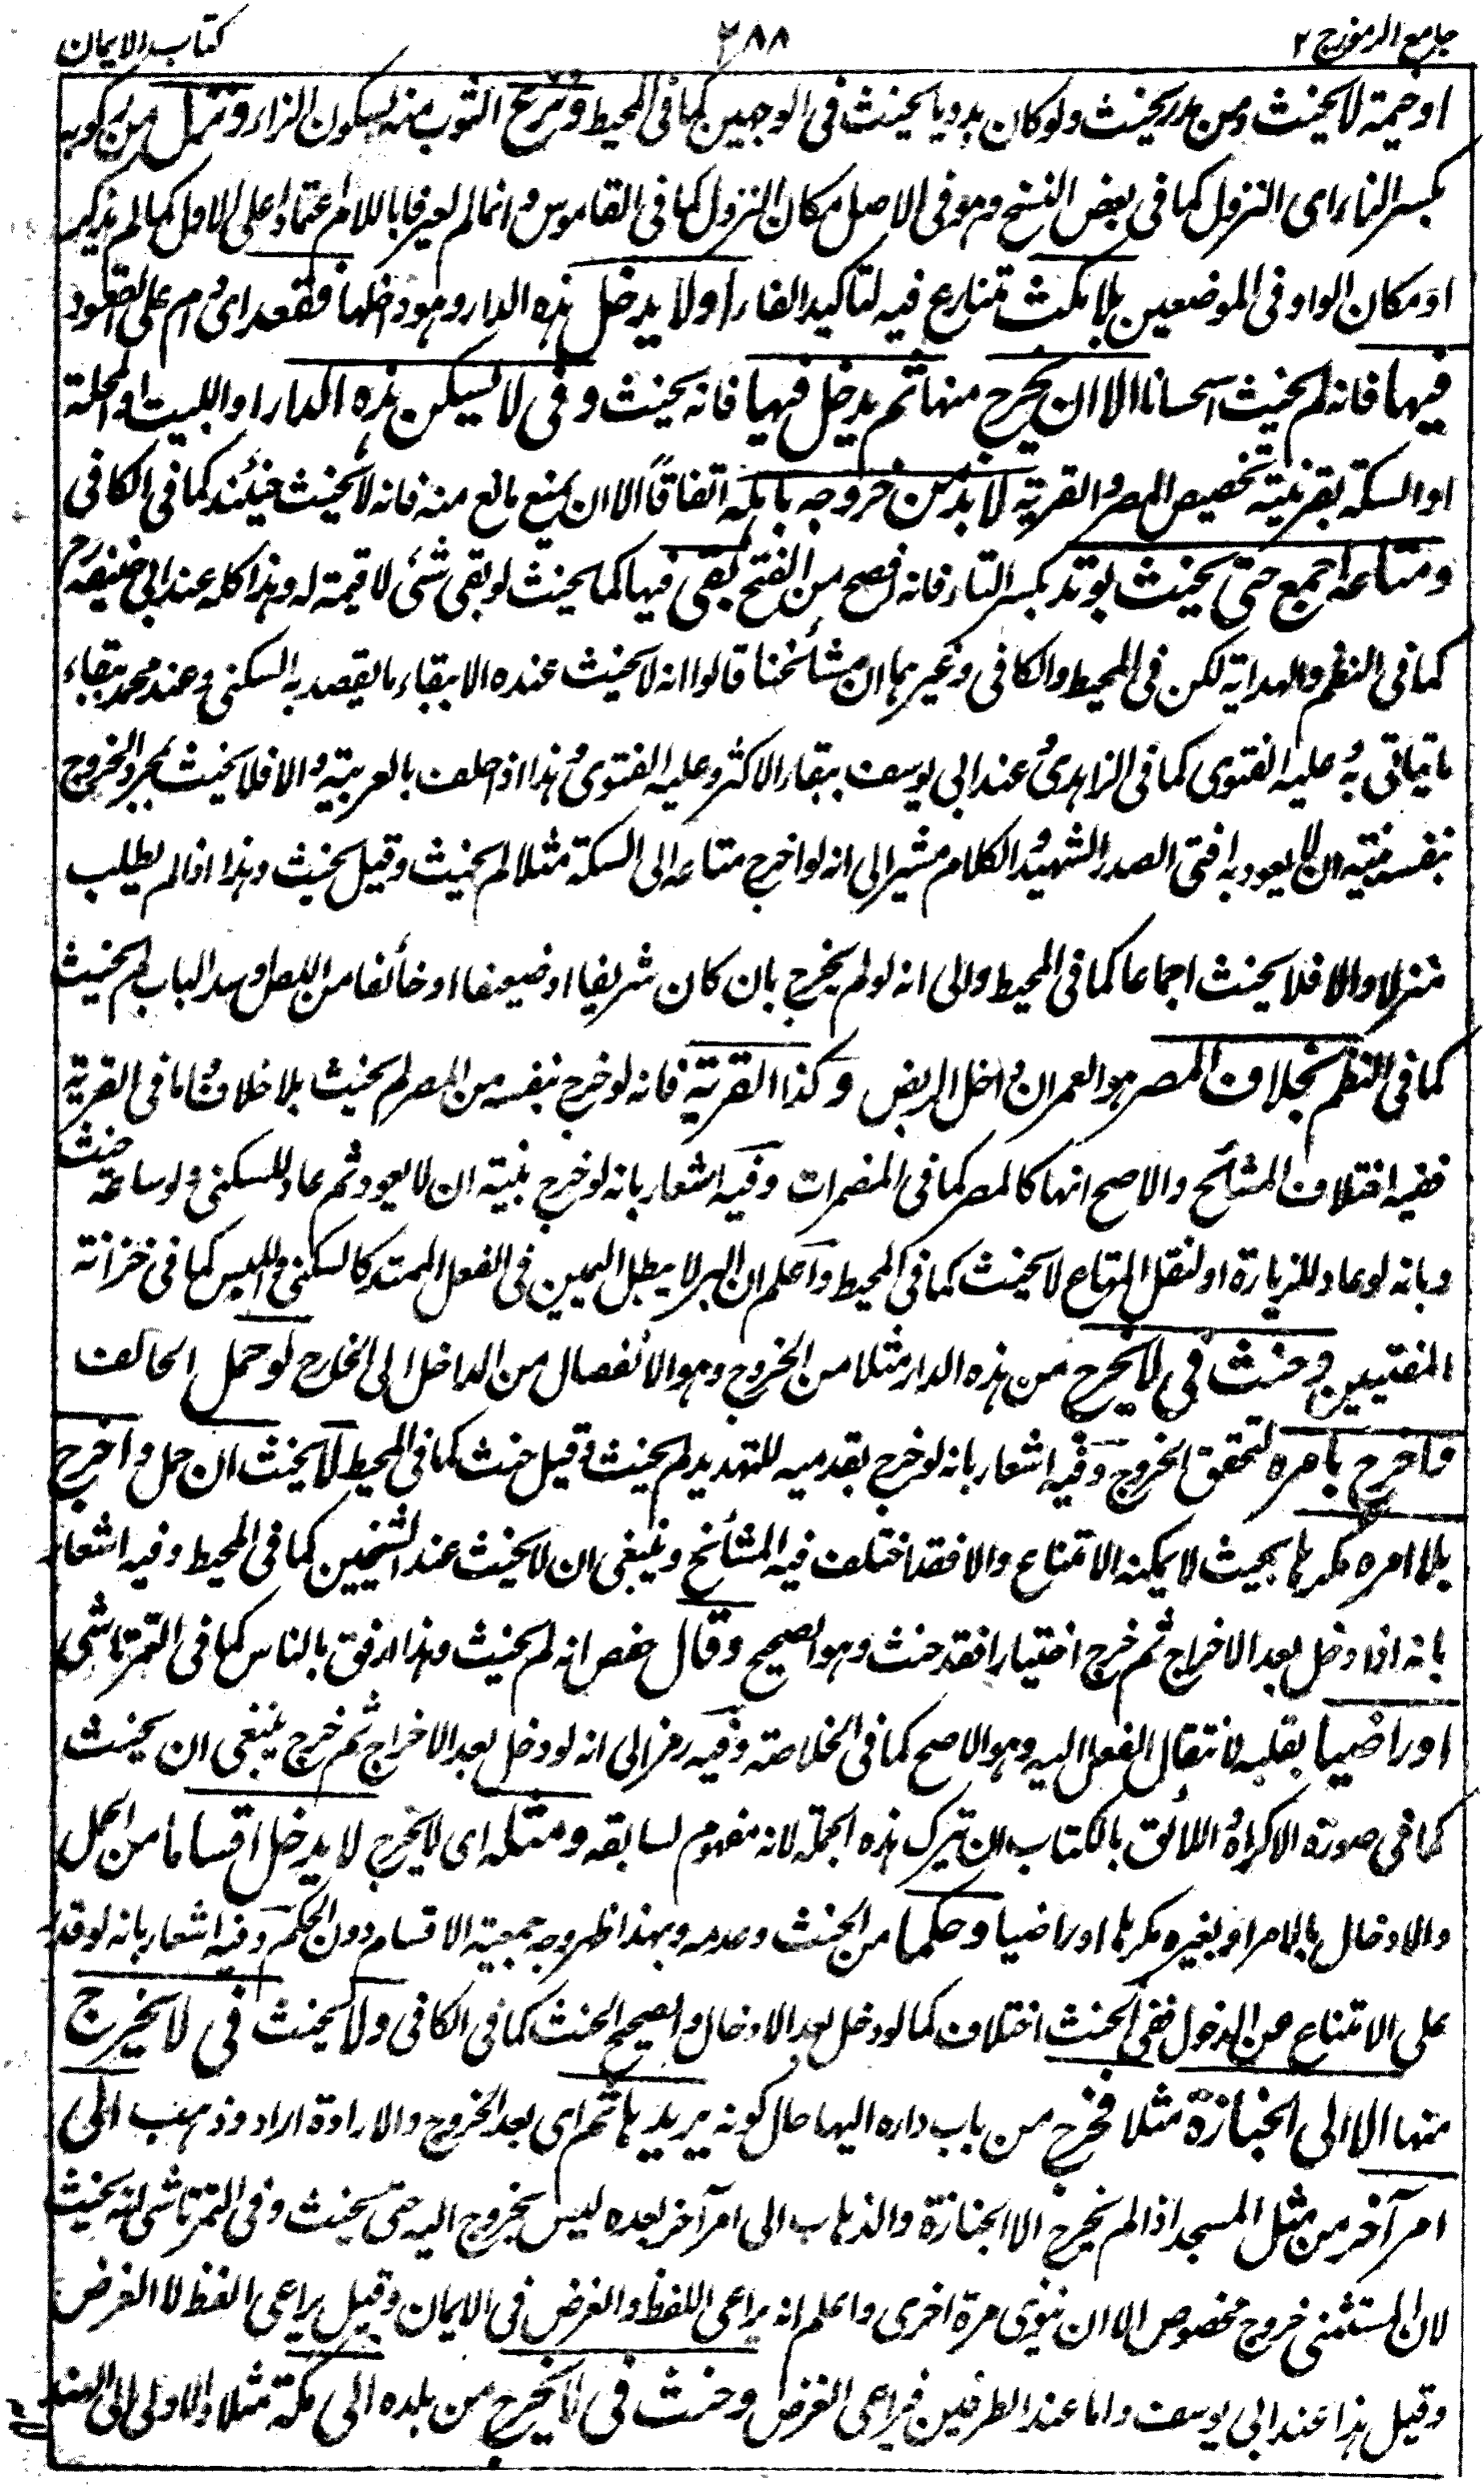 جامع الرموز ج ٢ ٢٨٨ كتاب الايمان
او خيمة لا يحنث ومن مدر يحنث ولو كان بدويا يحنث فى الوجهين كما فى المحيط ونزع الثوب منه بسكون الزاء ونزل من ركوبه
بكسر الزاء اى النزول كما فى بعض النسخ وهو فى الاصل مكان النزول كما فى القاموس وانما لم يعرفا باللام اعتمادا على الاول كما لم يذكر
او مكان الواو فى الموضعين بلا مكث تنازع فيه لتاكيد الفاء او لا يدخل هذه الدار وهو داخلها فقعد اى دام على القعود
فيها فانه لم يحنث استحسانا الا ان يخرج منها ثم يدخل فيها فانه يحنث وفى لا يسكن هذه الدار او البيت او المحلة
او السكة بقرينة تخصيص المصر والقرية لا بد من خروجه باهله اتفاقا الا ان يمنع مانع منه فانه لا يحنث حينئذ كما فى الكافى
ومتاعه اجمع حتى يحنث بوتد بكسر التاء فانه افصح من الفتح بقى فيها كما يحنث لو بقى شئ لا قيمة له وهذا كله عند ابى حنيفة رح
كما فى النظم والهداية لكن فى المحيط والكافى وغيرهما ان مشائخنا قالوا انه لا يحنث عنده الا ببقاء ما يقصد به السكنى وعند محمد ببقاء
ما يتاتى به وعليه الفتوى كما فى الزاهدى وعند ابى يوسف ببقاء الاكثر وعليه الفتوى وهذا اذا حلف بالعربية والا فلا يحنث بمجرد الخروج
بنفسه بنية ان لا يعود به افتى الصدر الشهيد والكلام مشير الى انه لو اخرج متاعه الى السكة مثلا لم يحنث وقيل يحنث وهذا اذا لم يطلب
منزلا والا فلا يحنث اجماعا كما فى المحيط والى انه لو لم يخرج بان كان شريفا او ضيعفا او خائفا من اللص او سد الباب لم يحنث
كما فى النظم بخلاف المصر هو العمران داخل الربض وكذا القرية فانه لو خرج بنفسه من المصر لم يحنث بلا خلاف واما فى القرية
ففيه اختلاف المشائخ والاصح انها كالمصر كما فى المضمرات وفيه اشعار بانه لو خرج بنية ان لا يعود ثم عاد للسكنى ولو ساعة حنث
وبانه لو عاد للزيارة او لنقل المتاع لا يحنث كما فى المحيط واعلم ان البر لا يبطل اليمين فى الفعل الممتد كالسكنى واللبس كما فى خزانة
المفتيين وحنث فى لا يخرج من هذه الدار مثلا من الخروج وهو الانفصال من الداخل الى الخارج لو حمل الحالف
واخرج بامره لتحقق الخروج وفيه اشعار بانه لو خرج بقدميه للتهديد لم يحنث وقيل حنث كما فى المحيط لا يحنث ان حمل واخرج
بلا امره مكرها بحيث لا يمكنه الامتناع والا فقد اختلف فيه المشائخ وينبغى ان لا يحنث عند الشيخين كما فى المحيط وفيه اشعار
بانه اذا دخل بعد الاخراج ثم خرج اختيارا فقد حنث وهو الصحيح وقال حفص انه لم يحنث وهذا ارفق بالناس كما فى التمرتاشى
او راضيا بقلبه لانتقال الفعل اليه وهو الاصح كما فى الخلاصة وفيه رمز الى انه لو دخل بعد الاخراج ثم خرج ينبغى ان يحنث
كما فى صورة الاكراه واللائق بالكتاب ان تترك هذه الجملة لانه مفهوم لسابقه ومثله اى لا يخرج لا يدخل اقساما من الحمل
والادخال بالامر او بغيره مكرها او راضيا وحكما من الحنث وعدمه وبهذا ظهر وجه جمعية الاقسام دون الحكم وفيه اشعار بانه لو قدر
على الامتناع من الدخول ففى الحنث اختلاف كما لو دخل بعد الادخال والصحيح الحنث كما فى الكافى ولا يحنث فى لا يخرج
منها الا الى الجنازة مثلا فخرج من باب داره اليها حال كونه يريدها ثم اى بعد الخروج والارادة اراد وذهب الى
امر آخر من مثل المسجد اذا لم يخرج الا لجنازة والذهاب الى امر آخر بعده ليس بخروج اليه حتى يحنث وفى التمرتاشى انه يحنث
لان المستثنى خروج مخصوص الا ان ينوى مرة اخرى واعلم انه يراعى اللفظ والغرض فى الايمان وقيل يراعى اللفظ لا الغرض
وقيل هذا عند ابى يوسف واما عند الطرفين فيراعى الغرض وحنث فى لا يخرج من بلده الى مكة مثلا والاولى الى الهند